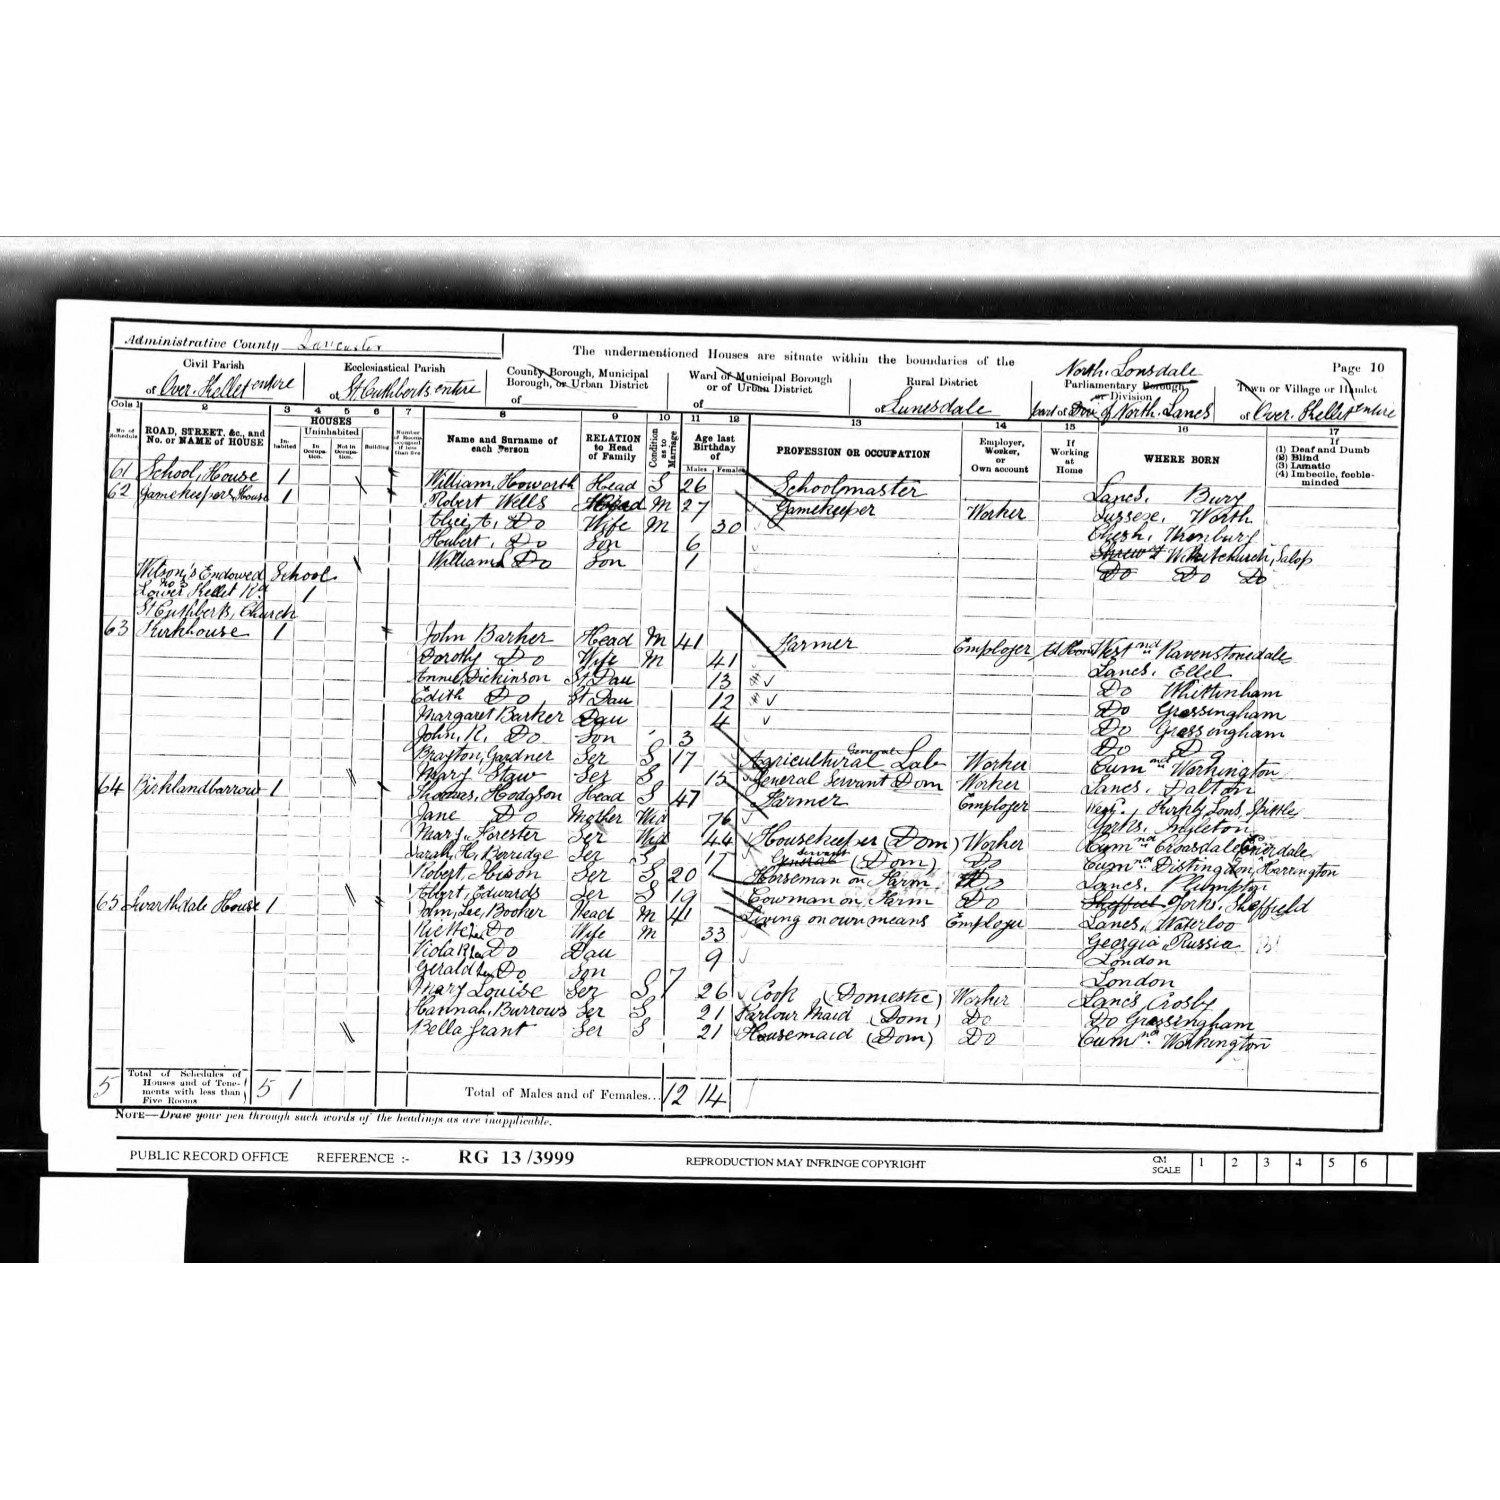 Administrative County Lancaster
The undermentioned Houses are situate within the boundaries of the
Page 10
Civil Parish
of Over Kellet entire
Ecclesiastical Parish
of St Cuthberts entire
County Borough, Municipal Borough, or Urban District
of
Ward of Municipal Borough or of Urban District
of
Rural District
of Lunesdale
North. Lonsdale
Parliamentary Borough, or Division
part of Div of North. Lancs
Town or Village or Hamlet
of Over. Kellet entire
Cols 1 2 3 4 5 6 7 8 9 10 11 12 13 14 15 16 17
No. of Schedule
ROAD, STREET, &c., and No. or NAME of HOUSE
HOUSES
Inhabited
Uninhabited
In Occupation.
Not in Occupation.
Building
Number of Rooms occupied if less than five
Name and Surname of each Person
RELATION to Head of Family
Condition as to Marriage
Age last Birthday of
Males Females
PROFESSION OR OCCUPATION
Employer, Worker, or Own account
If Working at Home
WHERE BORN
If
(1) Deaf and Dumb
(2) Blind
(3) Lunatic
(4) Imbecile, feeble-minded
61 School, House 1 William, Howorth Head S 26 Schoolmaster Lancs. Bury
62 Gamekeepers, House 1 Robert Wells Head M 27 Gamekeeper Worker Sussex, Worth
Do Wife M 30 Chesh, Wrenbury
Hubert, Do Son 6 Whitchurch, Salop
William Do Son 1 Do Do Do
Wilson's Endowed School
Lower Kellet Rd 1
St Cuthberts, Church
63 Kirkhouse 1 John Barker Head M 41 Farmer Employer At Home Westnd Ravenstonedale
Dorothy Do Wife M 41 Lancs. Ellel
Annie, Dickinson St Dau 13 Do Whittinham
Edith Do St Dau 12 Do Gressingham
Margaret Barker Dau 4 Do Gressingham
John, R. Do Son 3 Do Do
Brayton, Gardner Ser S 17 Agricultural General Lab Worker Cumnd Workington
Mary Shaw Ser S 15 General Servant Dom Worker Lancs. Dalton
64 Birklandbarrow 1 Thomas, Hodgson Head S 47 Farmer Employer
Jane Do Mother Wid 76 Yorks. Ingleton
Mary. Forester Ser Wid 44 Housekeeper (Dom) Worker Cumnd Croasdale Ennerdale
Sarah, H. Berridge Ser S 17 General servant (Dom) Do Cumnd Distington, Harrington
Robert, Ser S 20 Horseman on, Farm Do Lancs.
Edwards Ser S 19 Cowman on, Farm Do Sheffield Yorks. Sheffield
65 Swarthdale House 1 John, Lee, Booker Head M 41 Living on own means Employer Lancs. Waterloo
Do Wife M 33 Georgia, Russia
Viola Do Dau 9 London
Gerald Do Son 7 London
Mary Louise Ser S 26 Cook (Domestic) Worker Lancs Crosby
Hannah, Burrows Ser S 21 Parlour Maid (Dom) Do Do Gressingham
Bella Grant Ser S 21 Housemaid (Dom) Do Cumnd Workington
5 Total of Schedules of Houses and of Tenements with less than Five Rooms 5 1 Total of Males and of Females... 12 14
NOTE—Draw your pen through such words of the headings as are inapplicable.
PUBLIC RECORD OFFICE REFERENCE :- RG 13/3999 REPRODUCTION MAY INFRINGE COPYRIGHT CM SCALE 1 2 3 4 5 6